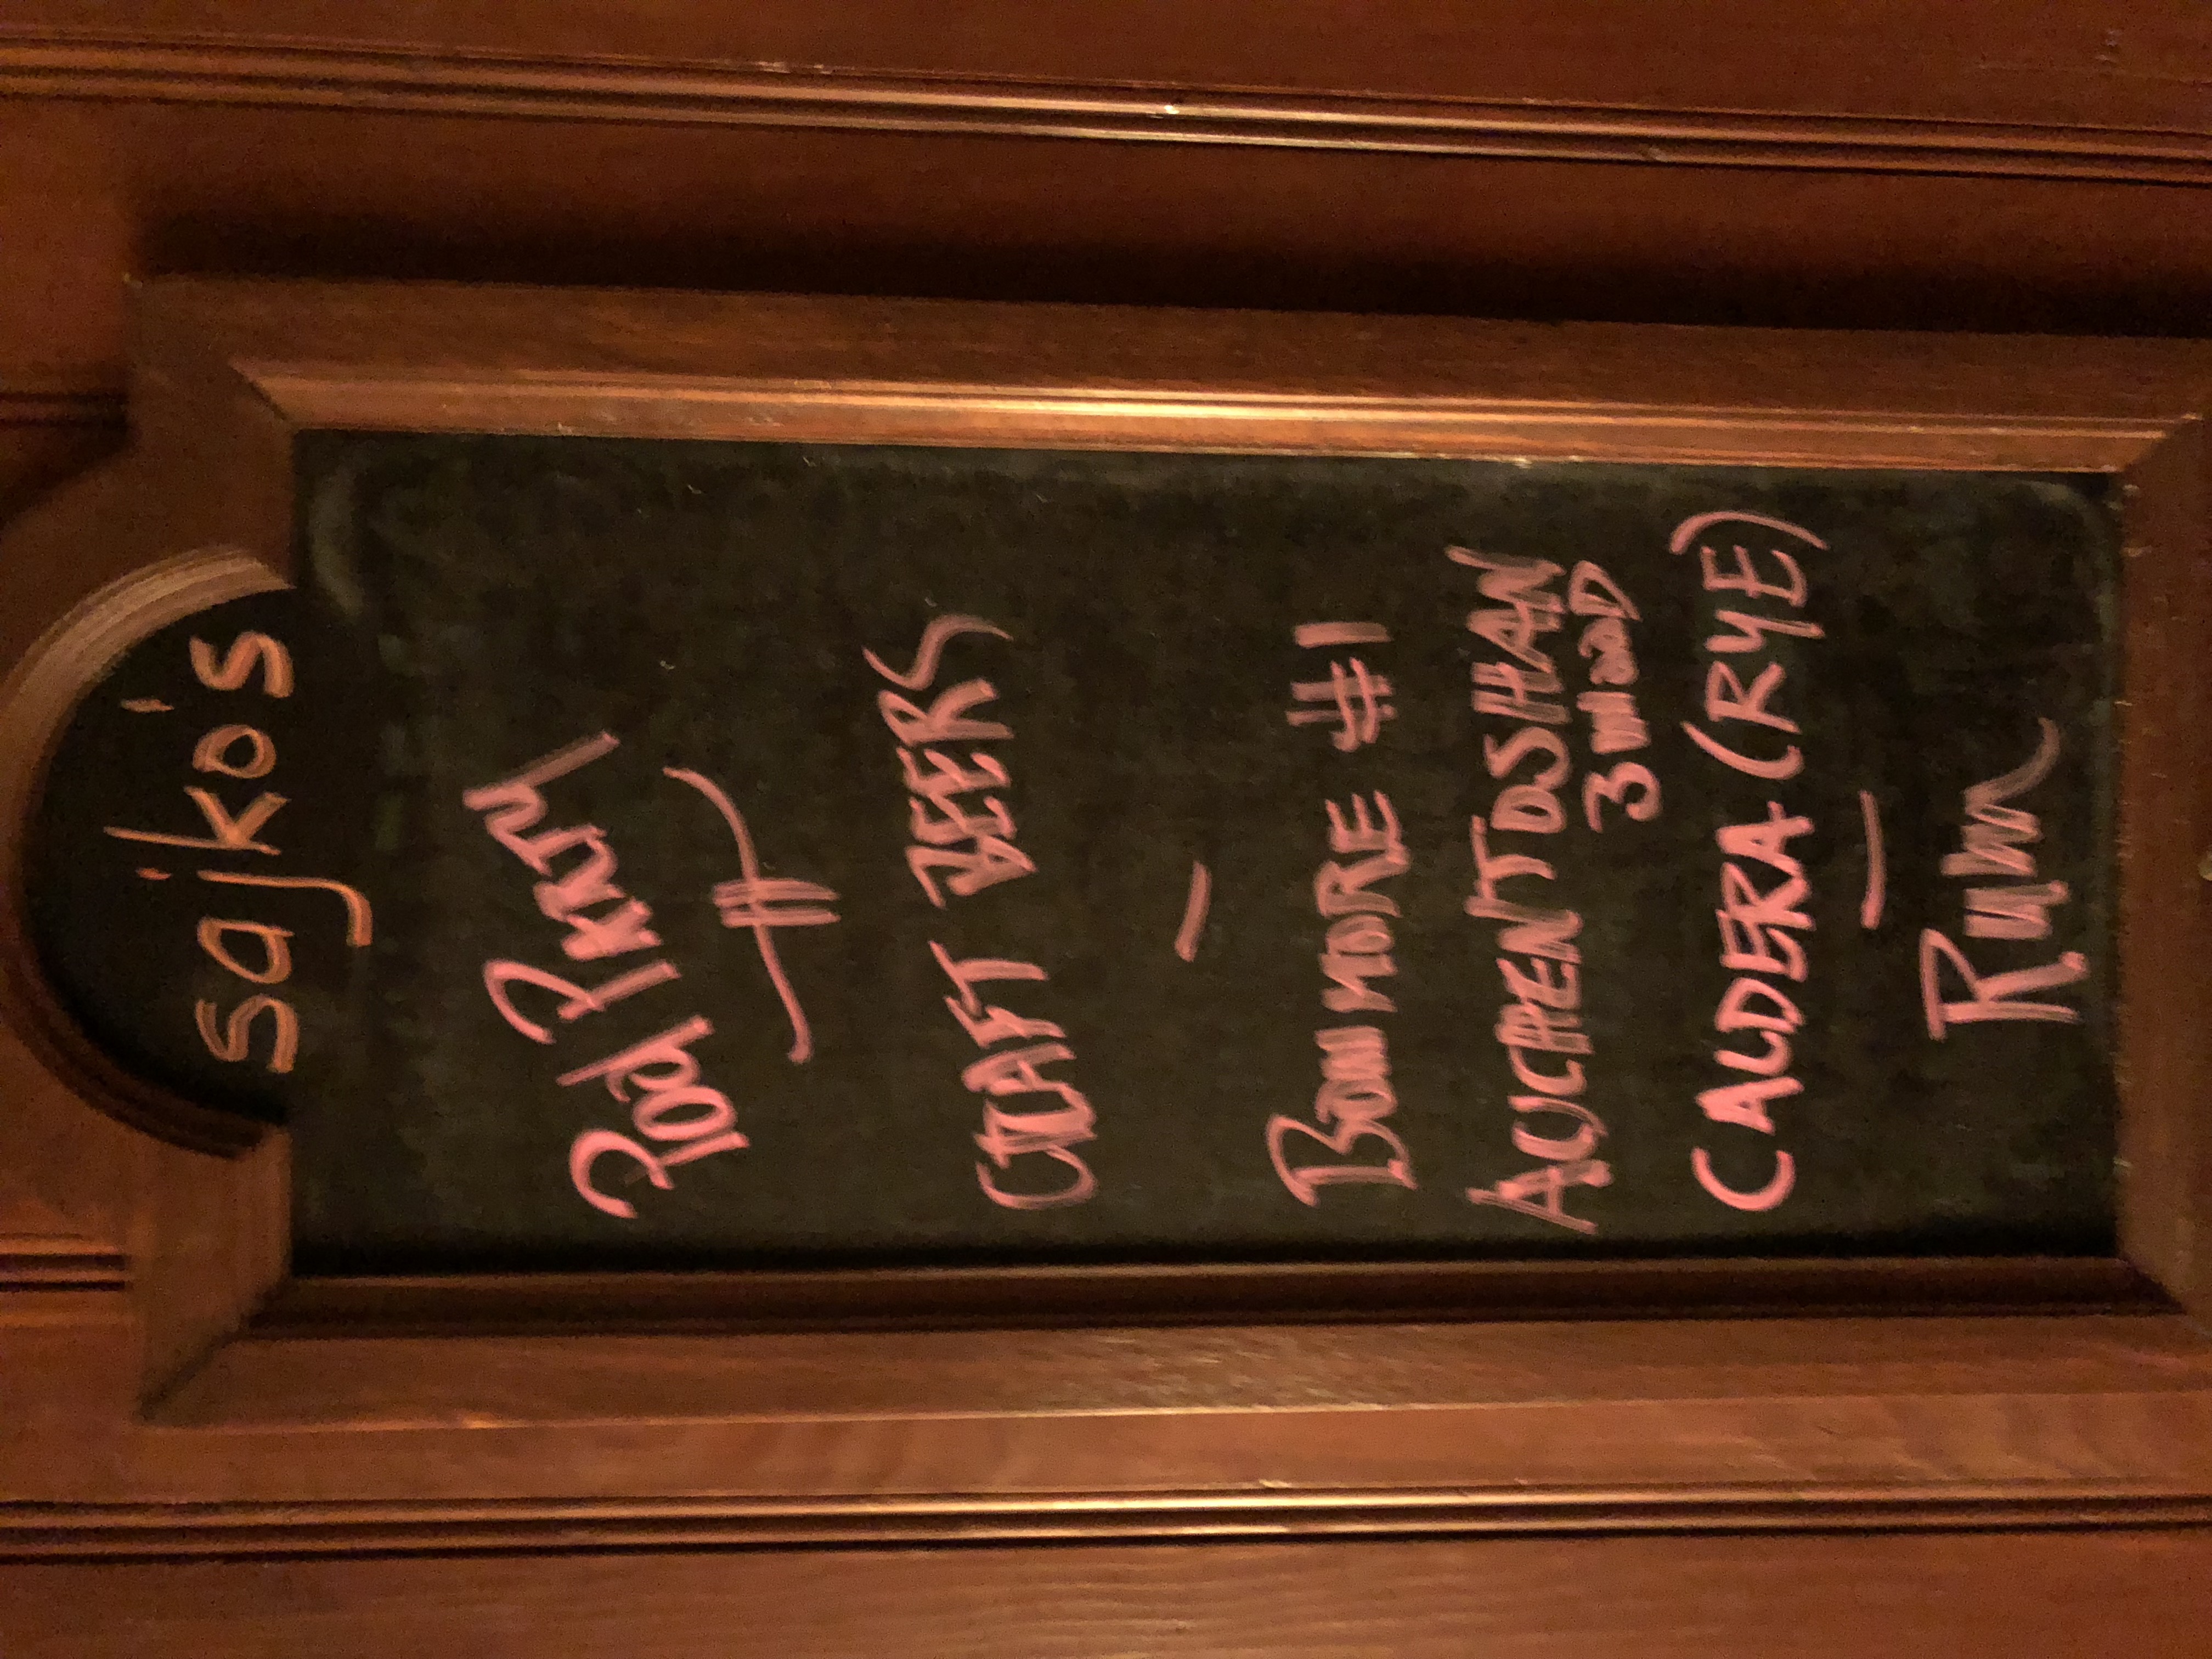 sajko's
Pool Party
CRAFT BEERS
—
BOWMORE #1
AUCHENTOSHAN
3 WOOD
CALDERA (RYE)
—
Rum